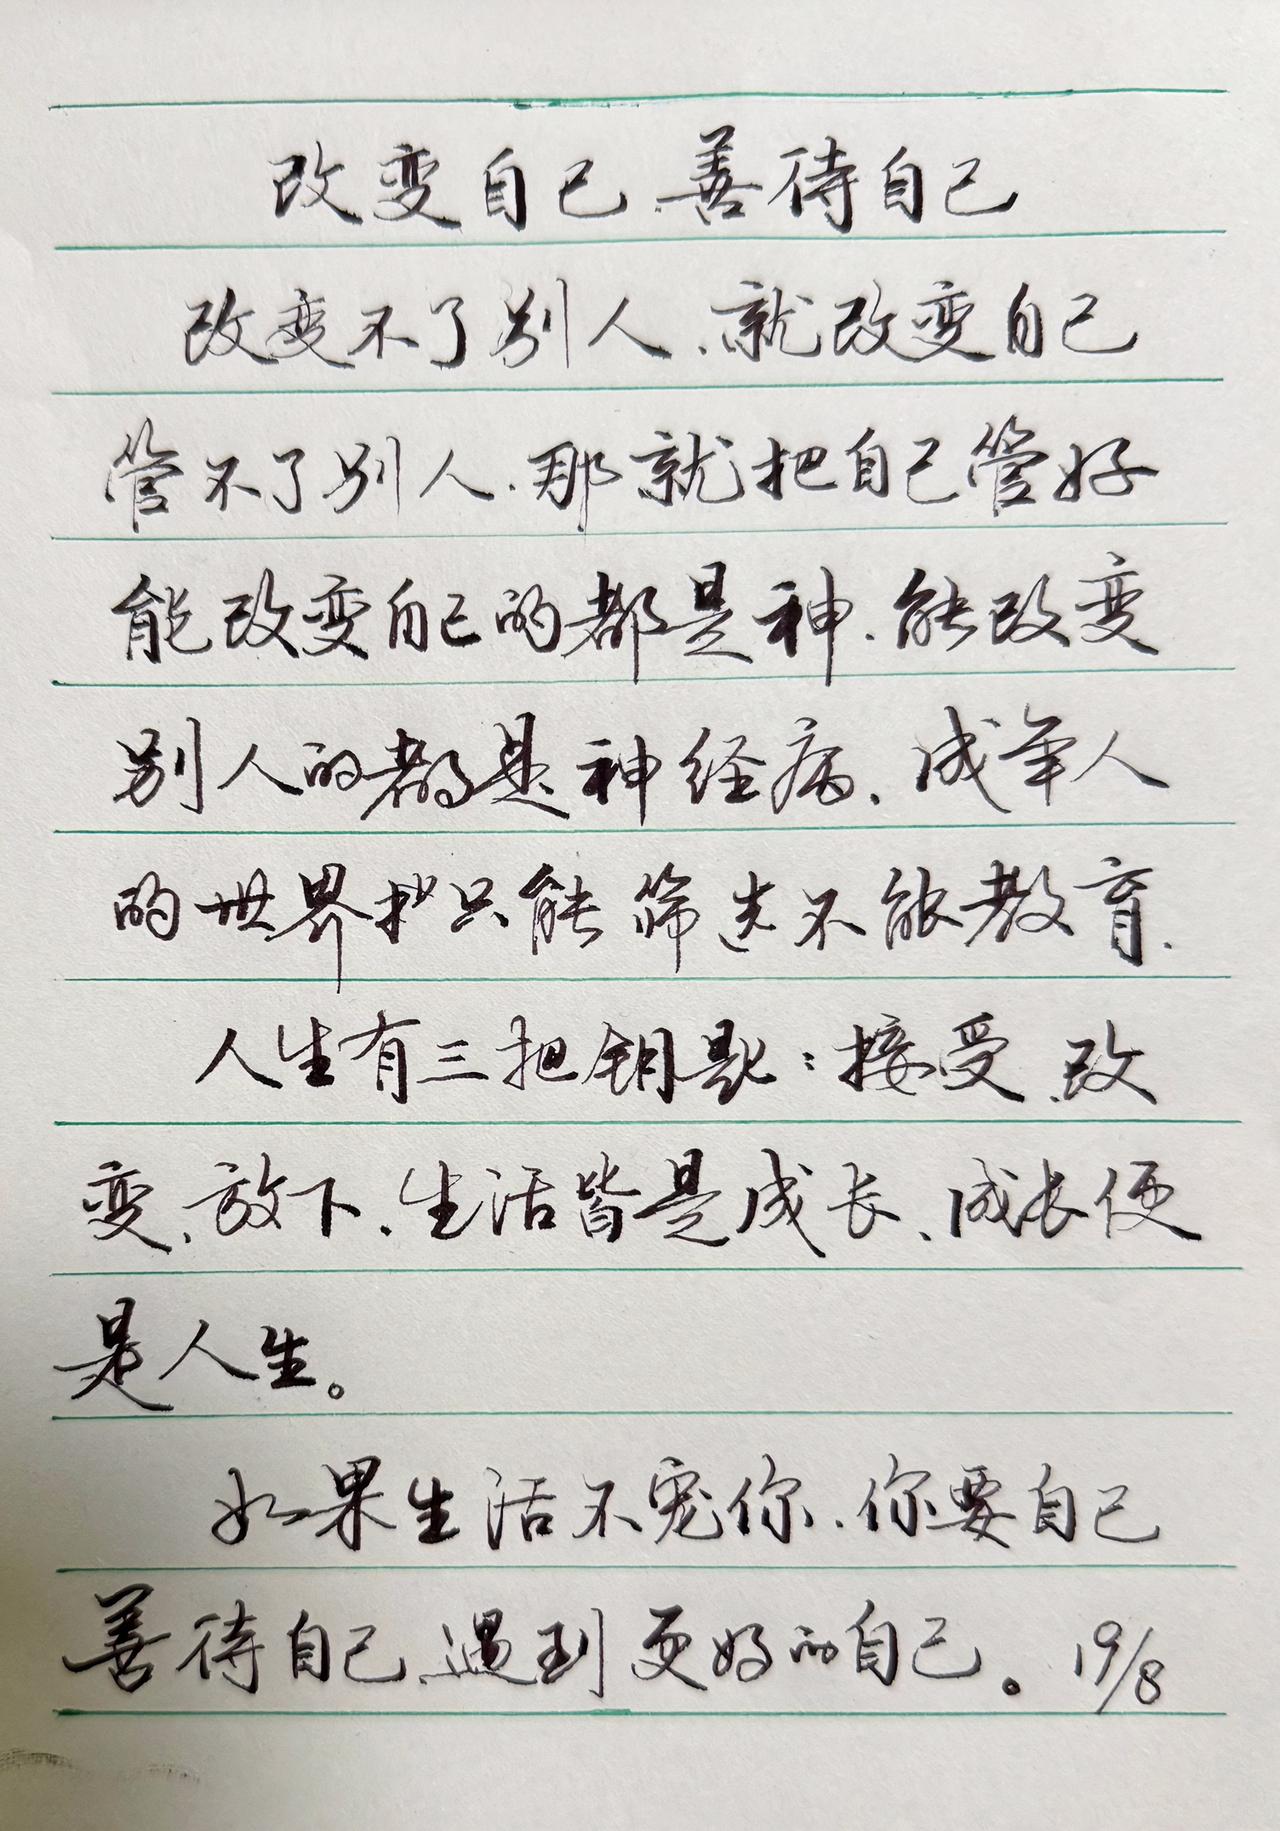 改变自己、善待自己
改变不了别人、就改变自己
管不了别人、那就把自己管好
能改变自己的都是神、能改变
别人的都是神经病、成年人
的世界里只能筛选不能教育.
人生有三把钥匙：接受、改
变、放下、生活皆是成长、成长便
是人生。
如果生活不宠你、你要自己
善待自己、遇到更好的自己。19/8